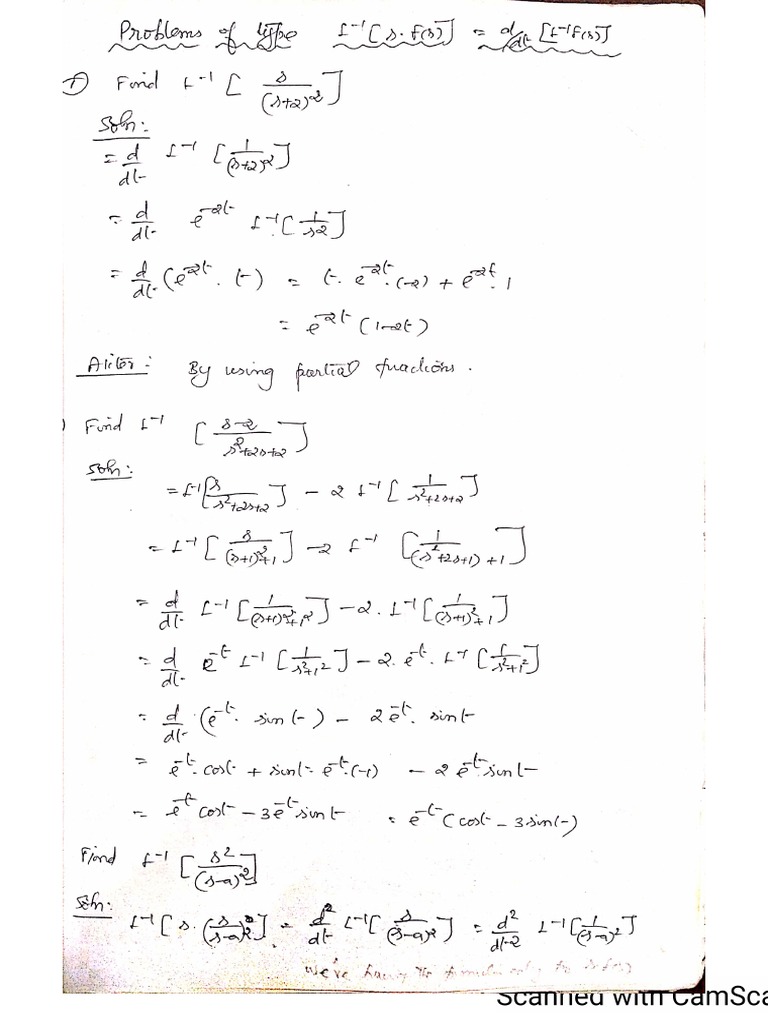 Problems of type L⁻¹[s·f(s)] = d/dt [L⁻¹F(s)]
① Find L⁻¹ [ s/(s+2)² ]
Soln:
= d/dt L⁻¹ [ 1/(s+2)² ]
= d/dt e⁻²ᵗ L⁻¹[ 1/s² ]
= d/dt (e⁻²ᵗ . t) = t. e⁻²ᵗ. (-2) + e⁻²ᵗ. 1
= e⁻²ᵗ (1-2t)
Aliter: By using partial fractions.
) Find L⁻¹ [ s-2/s²+2s+2 ]
Soln:
= L⁻¹[ s/s²+2s+2 ] - 2 L⁻¹ [ 1/s²+2s+2 ]
= L⁻¹ [ s/(s+1)²+1 ] -2 L⁻¹ [ 1/(s²+2s+1)+1 ]
= d/dt L⁻¹ [ 1/(s+1)²+1² ] - 2. L⁻¹ [ 1/(s+1)²+1 ]
= d/dt e⁻ᵗ L⁻¹ [ 1/s²+1² ] - 2. e⁻ᵗ. L⁻¹ [ 1/s²+1² ]
= d/dt (e⁻ᵗ. sint) - 2e⁻ᵗ. sint
= e⁻ᵗ. cost + sint. e⁻ᵗ.(-1) - 2e⁻ᵗ sint
= e⁻ᵗ cost - 3e⁻ᵗ sint = e⁻ᵗ (cost - 3sint)
Find L⁻¹ [ s²/(s-a)² ]
Soln:
L⁻¹ [ s. s/(s-a)² ] = d²/dt L⁻¹[ s/(s-a)² ] = d²/dt² L⁻¹[ 1/(s-a)² ]
we're having the formula
Scanned with CamSca